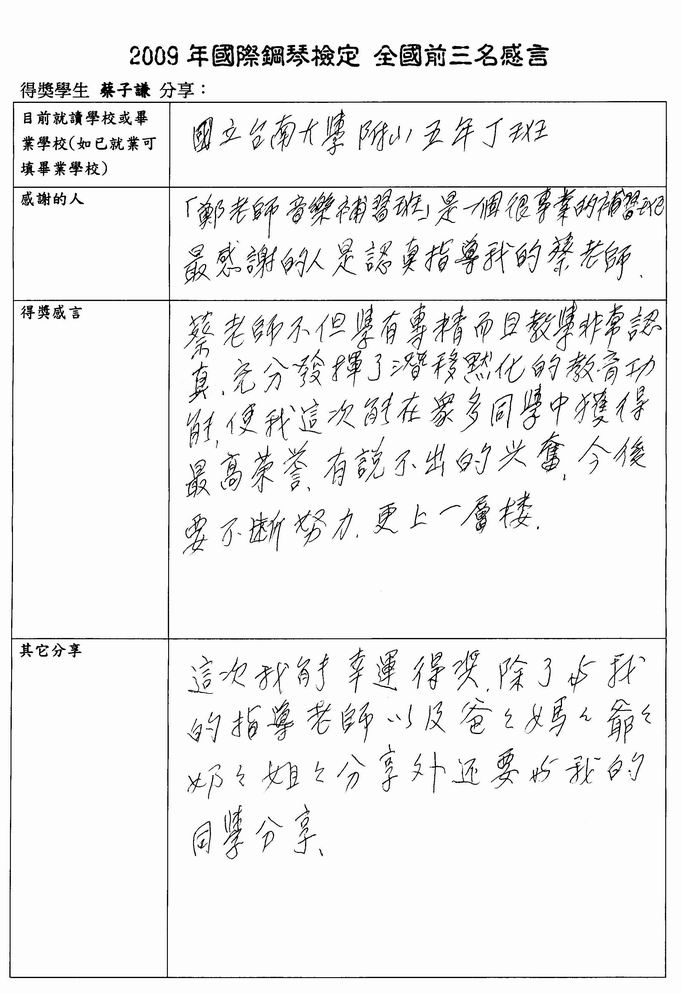 2009 年國際鋼琴檢定 全國前三名感言
得獎學生 蔡子謙 分享：
目前就讀學校或畢
業學校(如已就業可
填畢業學校)
國立台南大學附小五年丁班
感謝的人
「鄭老師音樂補習班」是一個很專業的補習班
最感謝的人是認真指導我的蔡老師.
得獎感言
蔡老師不但學有專精而且教學非常認
真.充分發揮了潛移默化的教育功
能,使我這次能在眾多同學中獲得
最高榮譽,有說不出的兴奮,今後
要不斷努力.更上一層楼.
其它分享
這次我能幸運得奖,除了与我
的指導老師以及爸々媽々爺々
奶々姐々分享外还要与我的
同學分享、